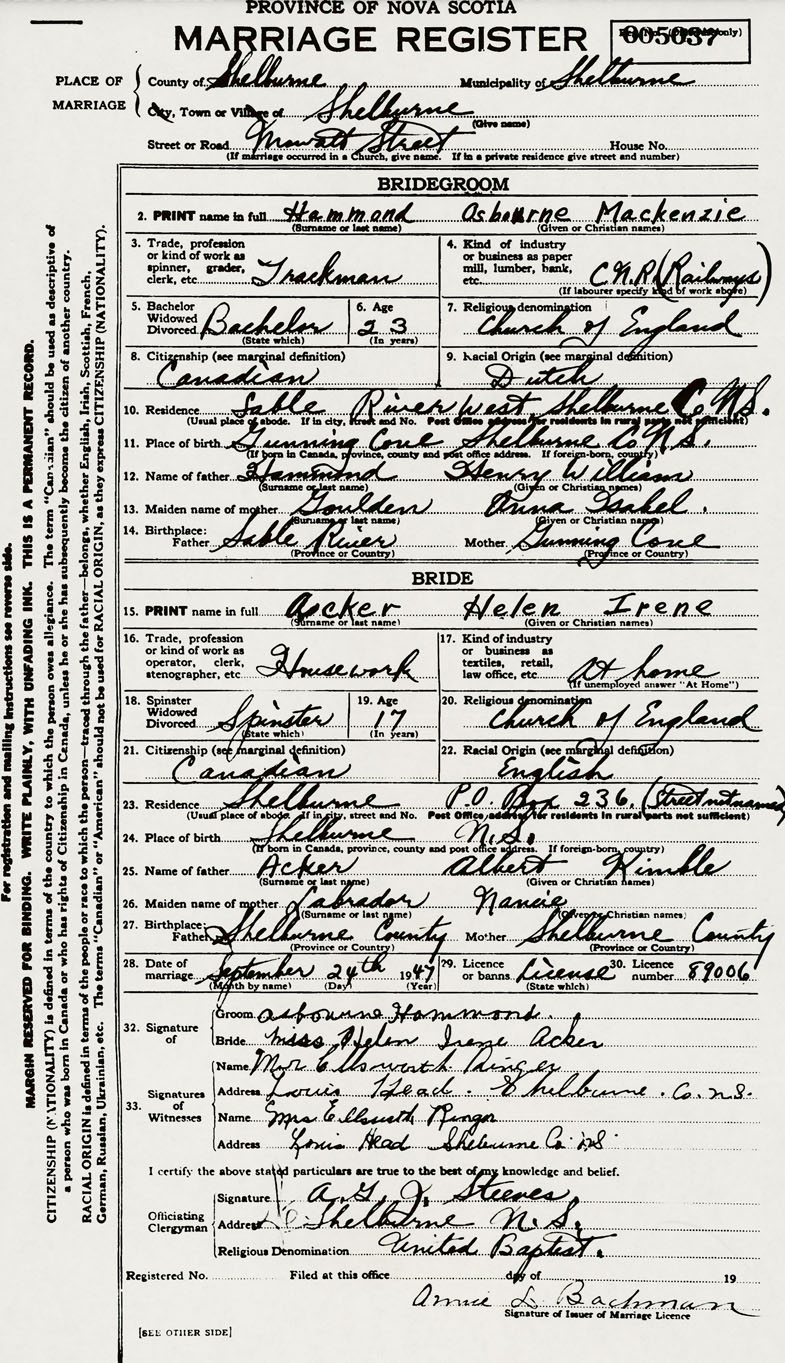 PROVINCE OF NOVA SCOTIA
MARRIAGE REGISTER
005037
PLACE OF MARRIAGE
County of Shelburne Municipality of Shelburne
City, Town or Village of Shelburne
(Give name)
Street or Road Mowatt Street House No.
(If marriage occurred in a Church, give name. If in a private residence give street and number)
BRIDEGROOM
2. PRINT name in full Hammond Asbourne Mackenzie
(Surname or last name) (Given or Christian names)
3. Trade, profession or kind of work as spinner, grader, clerk, etc Trackman
4. Kind of industry or business as paper mill, lumber, bank, etc. C.N.R. (Railways)
(If labourer specify kind of work above)
5. Bachelor Widowed Divorced Bachelor
(State which)
6. Age 23
(In years)
7. Religious denomination
Church of England
8. Citizenship (see marginal definition)
Canadian
9. Racial Origin (see marginal definition)
Dutch
10. Residence Sable River West Shelburne Co N.S.
(Usual place of abode. If in city, street and No. Post Office address for residents in rural parts not sufficient)
11. Place of birth Gunning Cove Shelburne Co N.S.
(If born in Canada, province, county and post office address. If foreign-born, country)
12. Name of father Hammond Henry William
(Surname or last name) (Given or Christian names)
13. Maiden name of mother Goulden Anna Isabel.
(Surname or last name) (Given or Christian names)
14. Birthplace:
Father Sable River Mother Gunning Cove
(Province or Country) (Province or Country)
BRIDE
15. PRINT name in full Acker Helen Irene
(Surname or last name) (Given or Christian names)
16. Trade, profession or kind of work as operator, clerk, stenographer, etc Housework
17. Kind of industry or business as textiles, retail, law office, etc. At home
(If unemployed answer "At Home")
18. Spinster Widowed Divorced Spinster
(State which)
19. Age 17
(In years)
20. Religious denomination
Church of England
21. Citizenship (see marginal definition)
Canadian
22. Racial Origin (see marginal definition)
English
23. Residence Shelburne P.O. Box 236. (Street not named)
(Usual place of abode. If in city, street and No. Post Office address for residents in rural parts not sufficient)
24. Place of birth Shelburne N.S.
(If born in Canada, province, county and post office address. If foreign-born, country)
25. Name of father Acker Albert Kimble
(Surname or last name) (Given or Christian names)
26. Maiden name of mother Labrador Nancie
(Surname or last name) (Given or Christian names)
27. Birthplace:
Father Shelburne County Mother Shelburne County
(Province or Country) (Province or Country)
28. Date of marriage September 24th 1947
(Month by name) (Day) (Year)
29. Licence or banns License
(State which)
30. Licence number 89006
32. Signature of
Groom Asbourne Hammond.
Bride Miss Helen Irene Acker
33. Signatures of Witnesses
Name Mr Ellsworth Ringer
Address Louis Head. Shelburne. Co. N.S.
Name Mrs Ellsworth Ringer
Address Louis Head Shelburne Co. N.S.
I certify the above stated particulars are true to the best of my knowledge and belief.
Officiating Clergyman
Signature A. G. J. Steeves,
Address Shelburne N.S.
Religious Denomination United Baptist.
Registered No. Filed at this office day of 19
Annie L Bachman
Signature of Issuer of Marriage Licence
[SEE OTHER SIDE]
For registration and mailing instructions see reverse side.
MARGIN RESERVED FOR BINDING. WRITE PLAINLY, WITH UNFADING INK. THIS IS A PERMANENT RECORD.
CITIZENSHIP (NATIONALITY) is defined in terms of the country to which the person owes allegiance. The term "Canadian" should be used as descriptive of
a person who was born in Canada or who has rights of Citizenship in Canada, unless he or she has subsequently become the citizen of another country.
RACIAL ORIGIN is defined in terms of the people or race to which the person—traced through the father—belongs, whether English, Irish, Scottish, French,
German, Russian, Ukrainian, etc. The terms "Canadian" or "American" should not be used for RACIAL ORIGIN, as they express CITIZENSHIP (NATIONALITY).